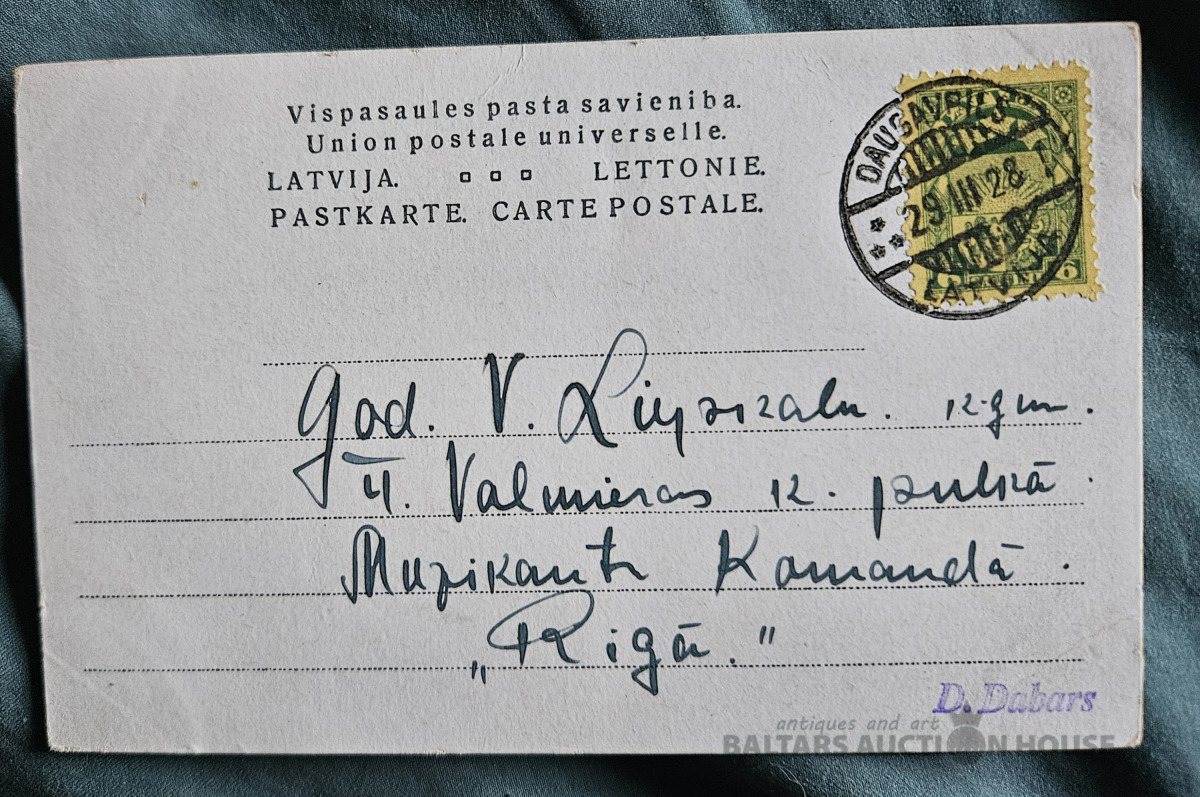 Vispasaules pasta savieniba.
Union postale universelle.
LATVIJA. LETTONIE.
PASTKARTE. CARTE POSTALE.
DAUGAVPILS
29 III 28
LATVIJA
6 6
God. V. k-gm.
4. Valmieras k. pulkā.
Muzikantu Komandā.
„Rigā."
D. Dabars
antiques and art
BALTARS AUCTION HOUSE